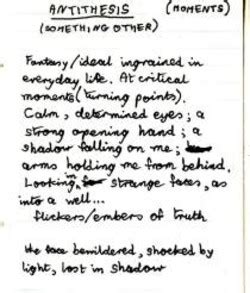 ANTITHESIS (MOMENTS)
(SOMETHING OTHER)
Fantasy/ideal ingrained in
everyday life. At critical
moments (turning points).
Calm, determined eyes; a
strong opening hand; a
shadow falling on me;
arms holding me from behind.
Looking in strange faces, as
into a well...
flickers/embers of truth
the face bewildered, shocked by
light, lost in shadow